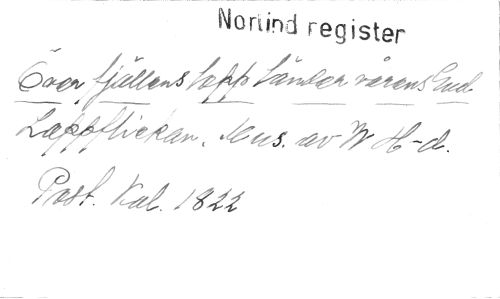 Norlind register
Över fjällens topp tänder vårens Gud
Lappflickan. Mus. av W H-d.
Post. Kal. 1822